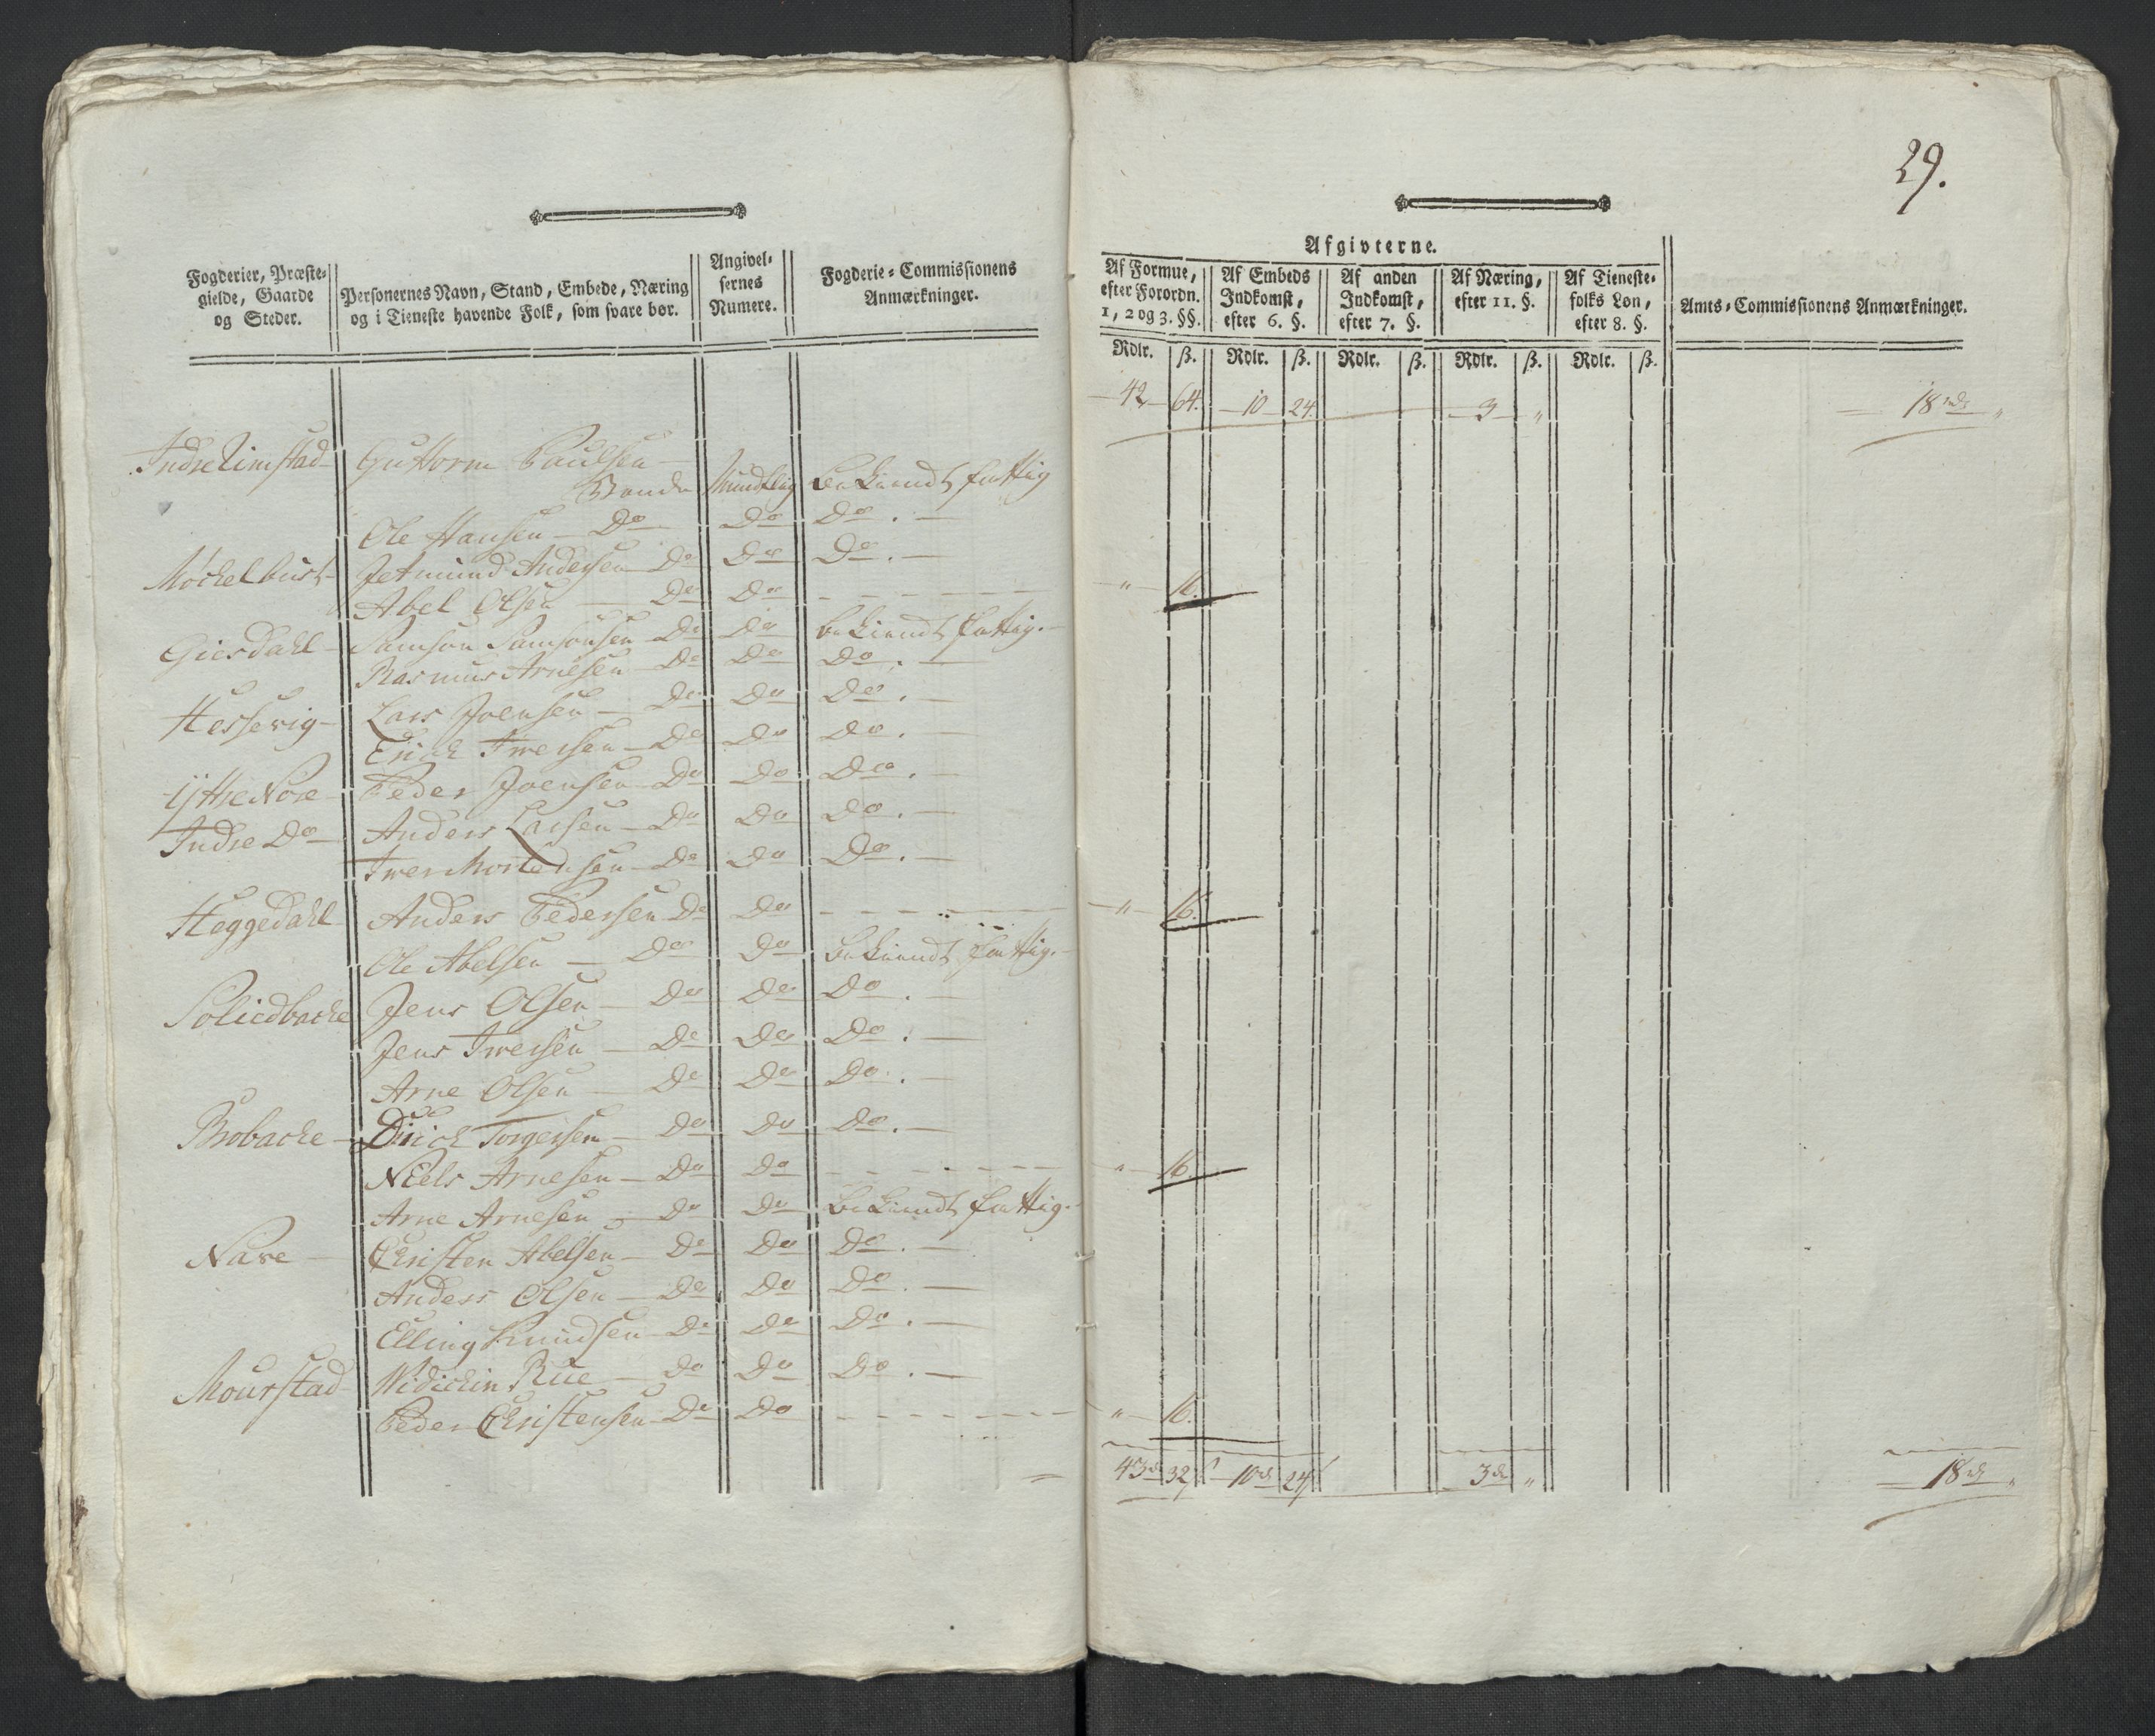 29.
Fogderier, Præste-
gielde, Gaarde
og Steder.
Personernes Navn, Stand, Embede, Næring
og i Tieneste havende Folk, som svare bør.
Angivel-
sernes
Numere.
Fogderie-Commissionens
Anmærkninger.
Afgivterne.
Af Formue,
efter Forordn.
1, 2 og 3. §§.
Af Embeds
Indkomst,
efter 6. §.
Af anden
Indkomst,
efter 7. §.
Af Næring,
efter 11. §.
Af Tieneste-
folks Løn,
efter 8. §.
Amts-Commissionens Anmærkninger.
Rdlr. ß. Rdlr. ß. Rdlr. ß. Rdlr. ß. Rdlr. ß.
42 64. 10 24. 3 " 18 rdr "
Indre Guttorm Paulsen
Bonde Mundtlig bekiendt fattig
Ole Hansen Do Do Do. 
Møchelbust Jetmund Andersen Do Do Do.
Abel Olsen Do Do " 16.
Giersdahl Samson Samsonsen Do Do bekiendt fattig.
Rasmus Arnesen Do Do Do.
Hessevig Lars Joensen Do Do Do.
Erich Iversen Do Do Do.
Ÿttre Nore Peder Joensen Do Do Do.
Indre Do Anders Larsen Do Do Do.
Iver Mortensen Do Do Do.
Heggedahl Anders Pedersen Do Do " 16.
Ole Abelsen Do Do bekiendt fattig.
Soliedbache Jens Olsen Do Do Do.
Jens Iversen Do Do Do.
Arne Olsen Do Do Do.
Brobache Dirich Torgersen Do Do Do.
Niels Arnesen Do Do " 16.
Arne Arnesen Do Do bekiendt fattig.
Nave Christen Abelsen Do Do Do.
Anders Olsen Do Do Do.
Elling Knudsen Do Do Do.
Mourstad Widichin Rue Do Do Do.
Peder Christensen Do Do " 16.
43 rd 32 10 rd 24 3 rd " 18 rd "